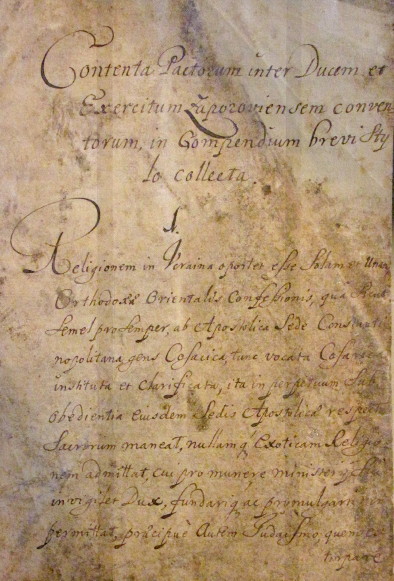 Contenta Pactorum inter Ducem et
Exercitum Zaporoviensem conven
torum, in Compendium brevi Sty
lo collecta.
1.
Religionem in Ucraina oportet esse Solam et Unam
Orthodoxæ Orientalis Confessionis, qua
Semel pro semper, ab Apostolica Sede Constanti
nopolitana gens Cosacica, tunc vocata
instituta et Clarificata, ita in perpetuum Sub
obedientia eiusdem Sedis Apostolicæ respectu
Sacrorum maneat, nullamq Exoticam Religio
nem admittat, cui pro munere ministerij
invigilet Dux, fundariq ac promulgari
permittat, præcipuè autem Judaismo, quem ex
tirpare